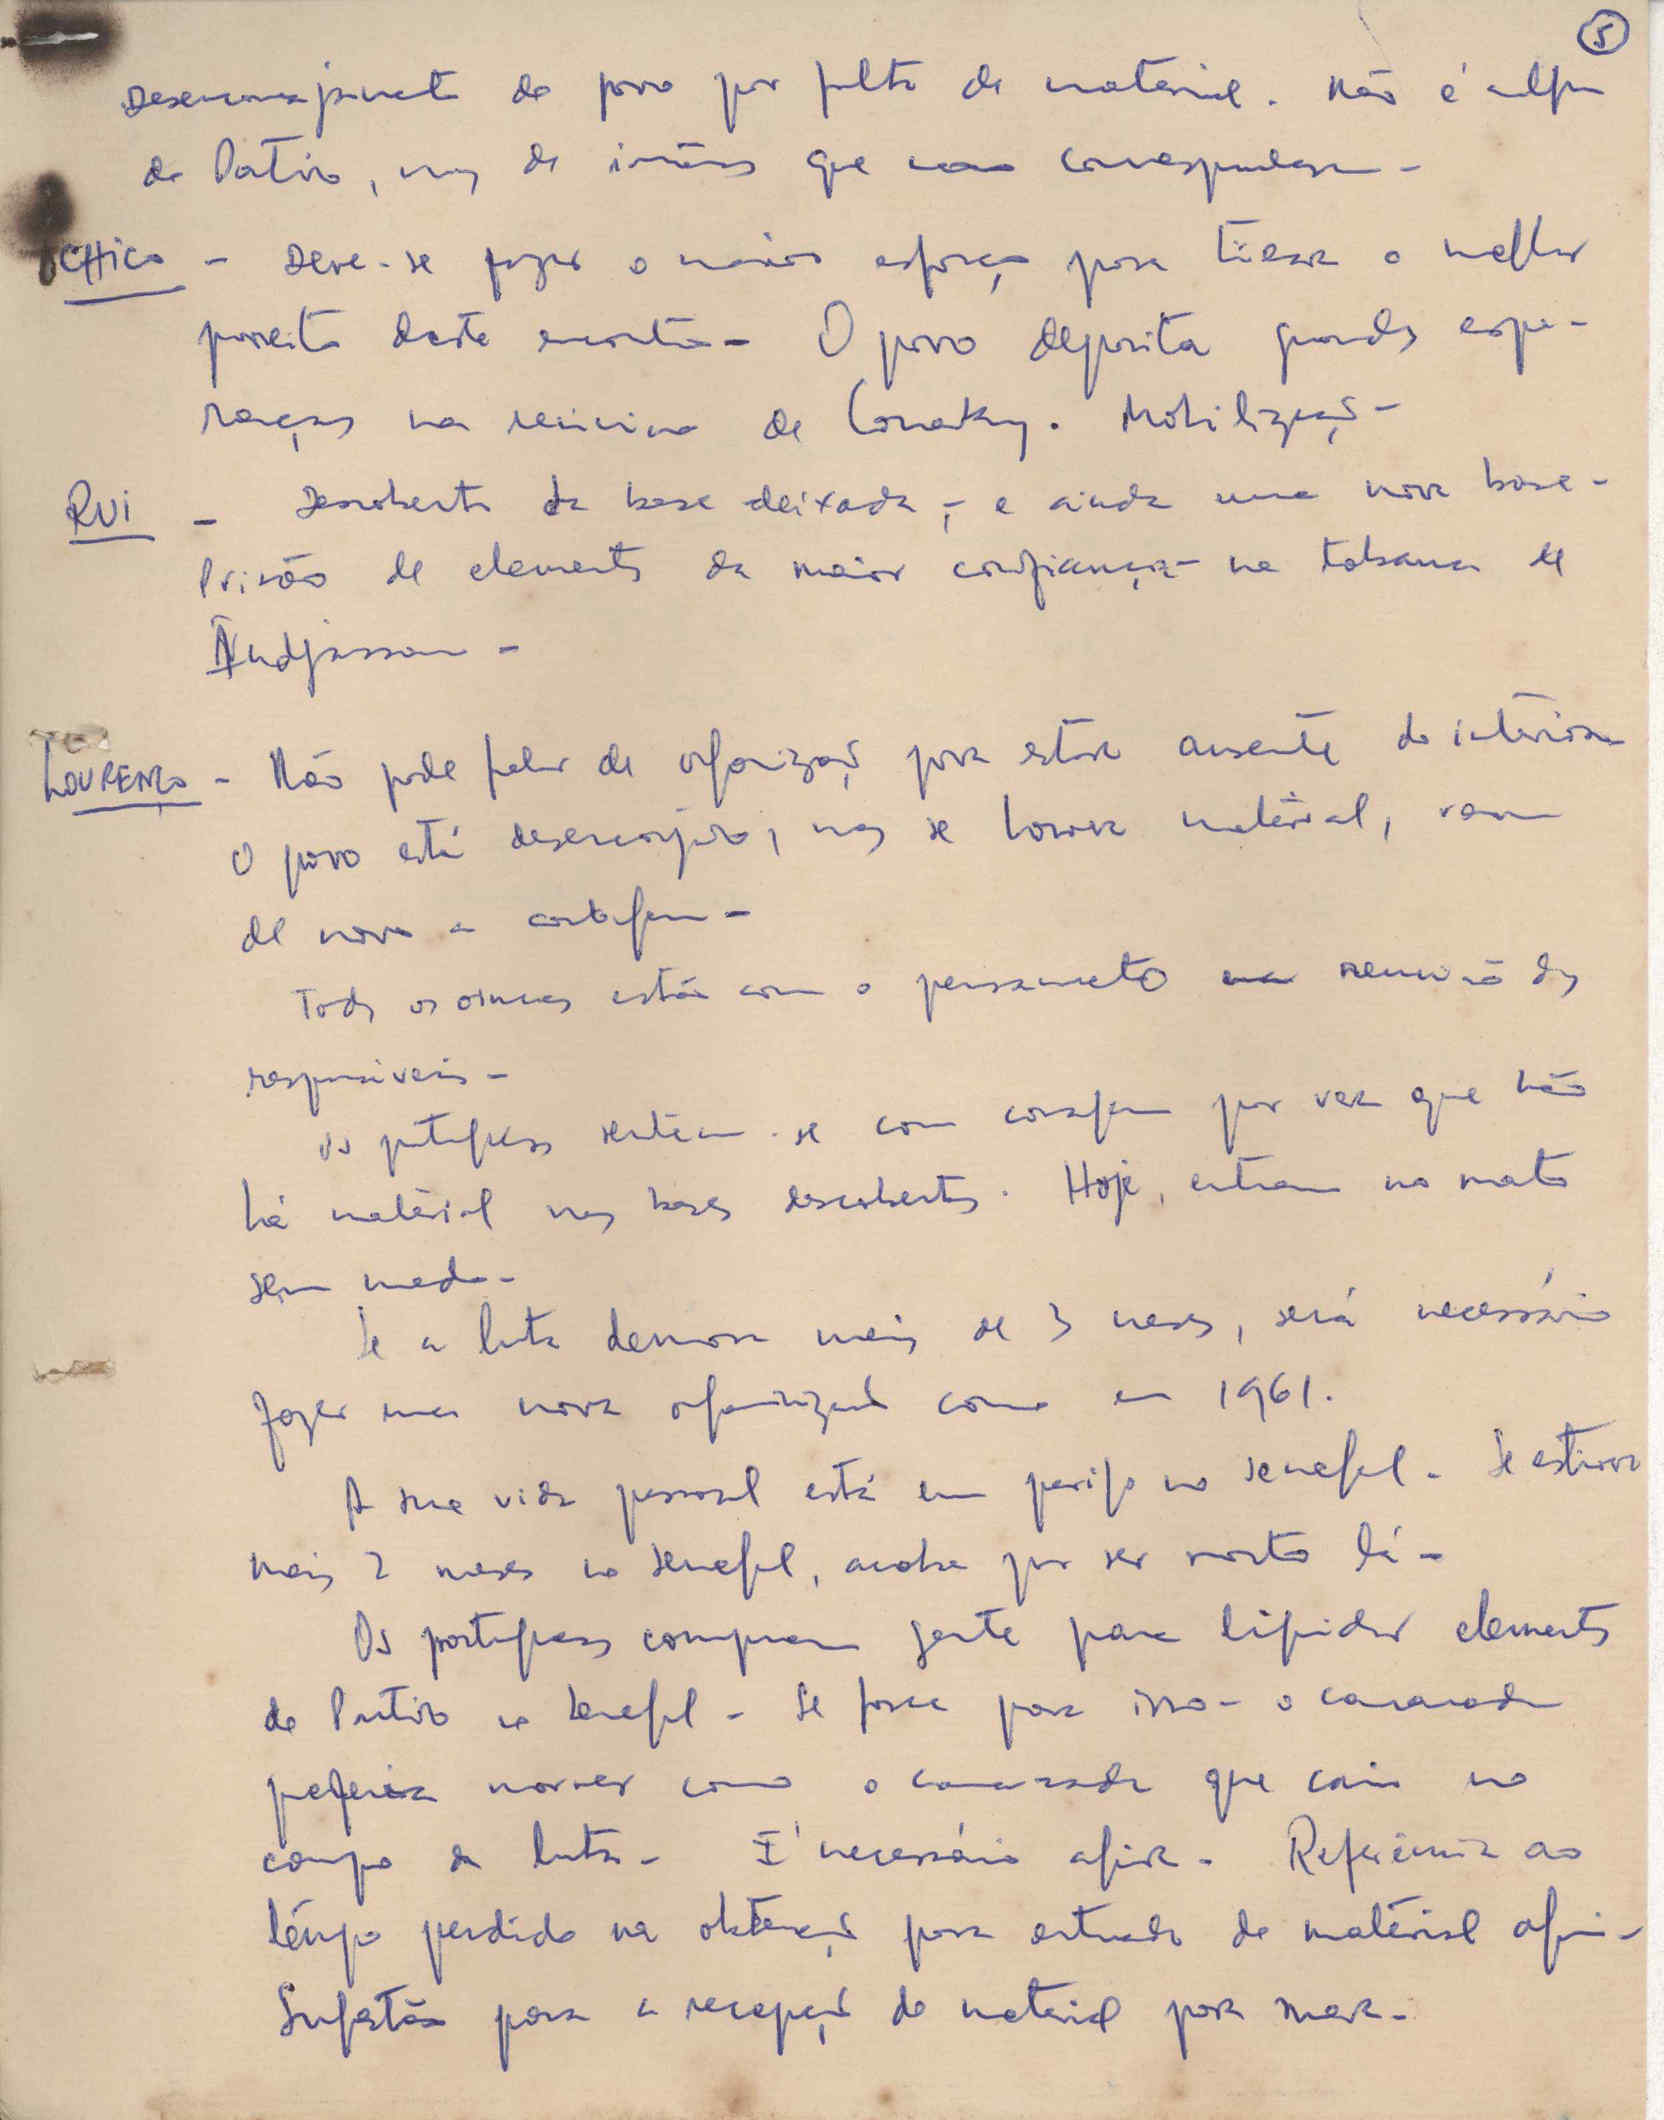 5
Desencorajamento do povo por falta de material. Não é culpa
do Partido, mas de irmãos que não correspondem -
CHICO - Deve-se fazer o maior esforço para tirar o melhor
proveito deste encontro - O povo deposita grandes espe-
ranças na reunião de Conakry. Mobilização -
RUI - Descoberta da base deixada, - e ainda uma nova base -
Prisão de elementos da maior confiança - na tabanca de
Indjassan -
LOURENÇO - Não pode falar de organização por estar ausente do interior
O povo está desencorajado, mas se houver material, vem
de novo a coragem -
Todos os irmãos estão com o pensamento na reunião dos
responsáveis -
Os portugueses sentem-se com coragem por ver que não
há material nas bases descobertas. Hoje, entram no mato
sem medo -
Se a luta demora mais de 3 meses, será necessário
fazer uma nova organização como em 1961.
A sua vida pessoal está em perigo no Senegal - Se estiver
mais 2 meses no Senegal, acaba por ser morto lá -
Os portugueses compram gente para liquidar elementos
do Partido no Senegal - Se fosse para isso - o camarada
preferia morrer como o camarada que caiu no
campo da luta - É necessário agir - Referência ao
tempo perdido na obtenção para entrada do material aqui -
Sugestão para a recepção do material por mar -